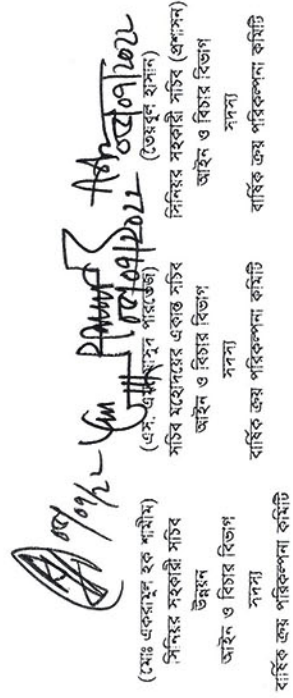 (মোঃ একরামুল হক শামীম)
সিনিয়র সহকারী সচিব
উন্নয়ন
আইন ও বিচার বিভাগ
সদস্য
বার্ষিক ক্রয় পরিকল্পনা কমিটি
(এস. এম. মাসুদ পারভেজ)
সচিব মহোদয়ের একান্ত সচিব
আইন ও বিচার বিভাগ
সদস্য
বার্ষিক ক্রয় পরিকল্পনা কমিটি
(তৈয়বুল হাসান)
সিনিয়র সহকারী সচিব (প্রশাসন)
আইন ও বিচার বিভাগ
সদস্য
বার্ষিক ক্রয় পরিকল্পনা কমিটি